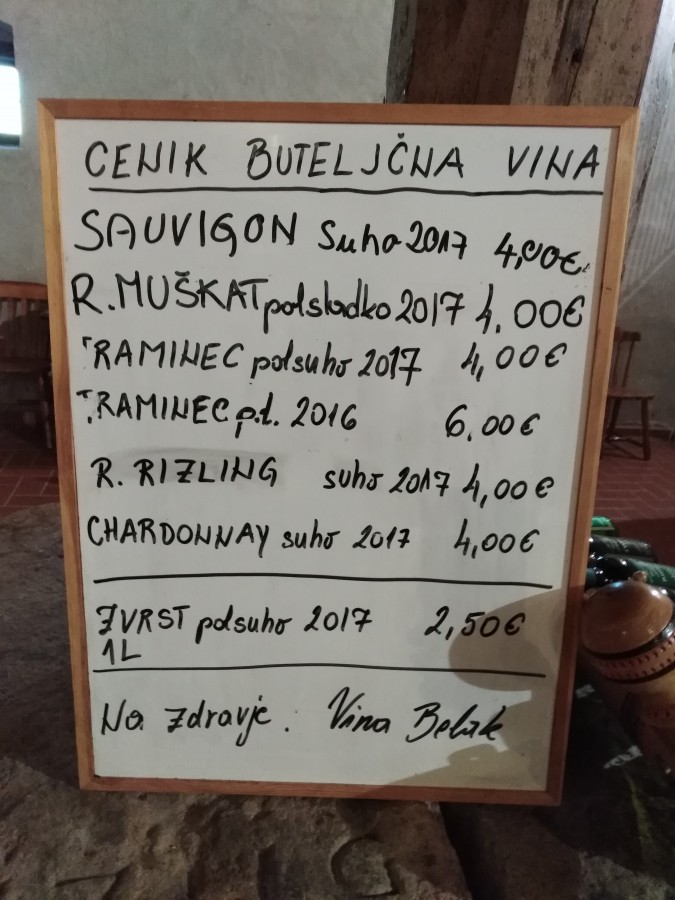 CENIK BUTELJČNA VINA
SAUVIGON suho 2017 4,00€
R. MUŠKAT polsladko 2017 4,00€
TRAMINEC polsuho 2017 4,00€
TRAMINEC p.t. 2016 6,00€
R. RIZLING suho 2017 4,00€
CHARDONNAY suho 2017 4,00€
ZVRST polsuho 2017 2,50€
1L
Na zdravje. Vina Belak